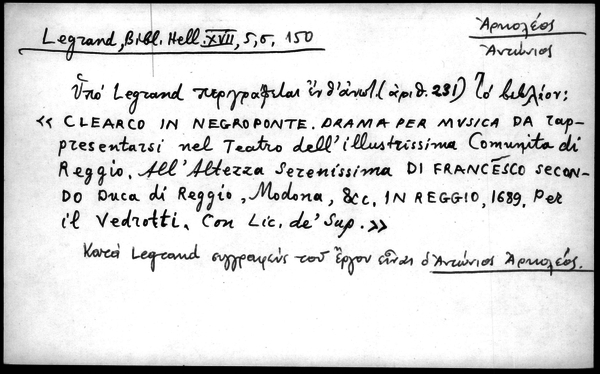 Legrand, Bibl. Hell. XVII, 5, σ. 150
Ἀρκολέος
Ἀντώνιος
Ὑπό Legrand περιγράφεται ἔνθ' ἀνωτ. (ἀριθ. 231) τό βιβλίον:
« CLEARCO IN NEGROPONTE. DRAMA PER MVSICA DA rap-
presentarsi nel Teatro dell'illustrissima Comunita di
Reggio. All'Altezza Serenissima DI FRANCESCO SECON-
DO Duca di Reggio, Modona, &c. IN REGGIO, 1689. Per
il Vedrotti. Con Lic. de' Sup. »
Κατά Legrand συγγραφεύς τοῦ ἔργου εἶναι ὁ Ἀντώνιος Ἀρκολέος.